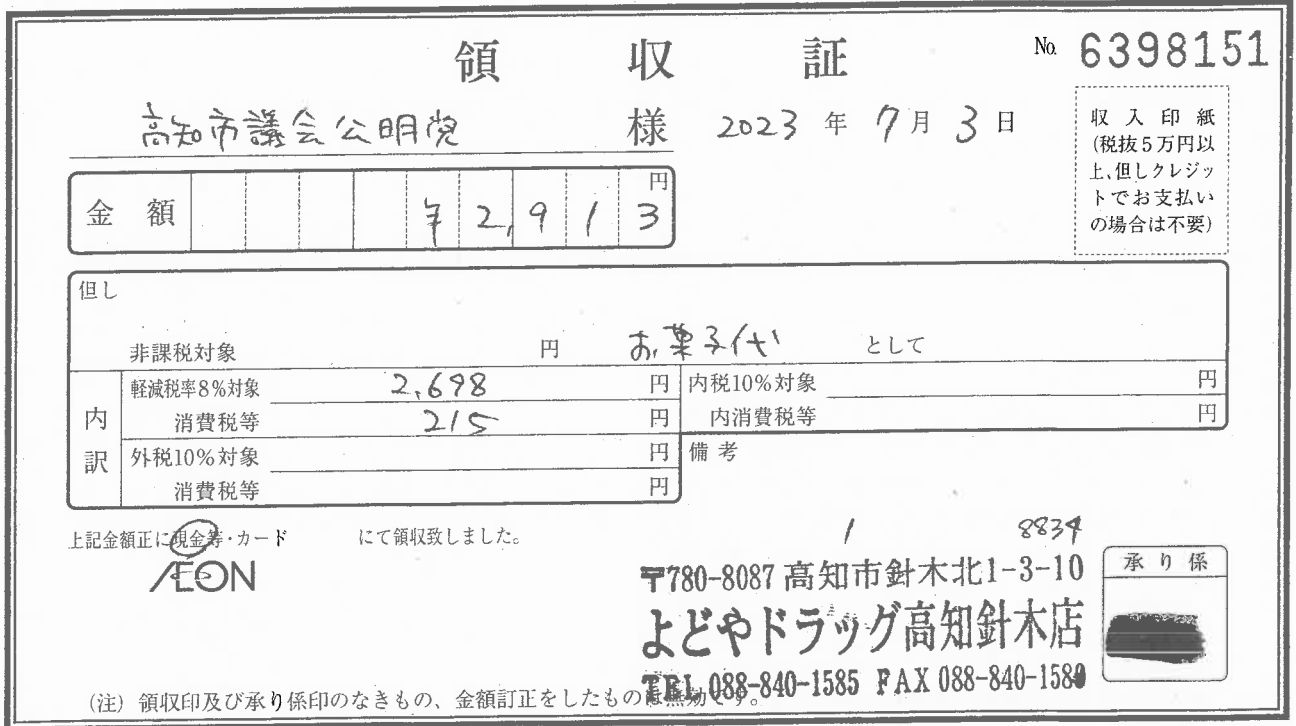 領収証
№ 6398151
高知市議会公明党 様
2023 年 7月 3 日
収入印紙
(税抜5万円以
上、但しクレジッ
トでお支払い
の場合は不要)
金額 ¥2,913 円
但し
非課税対象 円 お菓子代 として
内訳
軽減税率8%対象 2,698 円
消費税等 215 円
外税10%対象 円
消費税等 円
内税10%対象 円
内消費税等 円
備考
上記金額正に現金等・カード にて領収致しました。
ÆON
1 8834
〒780-8087 高知市針木北1-3-10
よどやドラッグ高知針木店
TEL 088-840-1585 FAX 088-840-1580
承り係
(注) 領収印及び承り係印のなきもの、金額訂正をしたものは無効です。